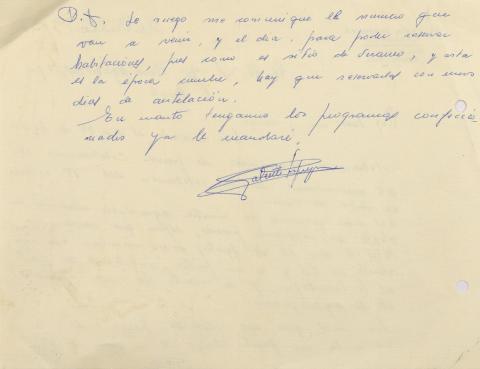 P.D. Le ruego me comunique el numero que
van a venir, y el dia, para poder reservar
habitaciones, pues como es sitio de verano, y esta
es la época cumbre, hay que reservarlas con unos
dias de antelación.
En cuanto tengamos los programas confeccio
nados ya le mandaré.